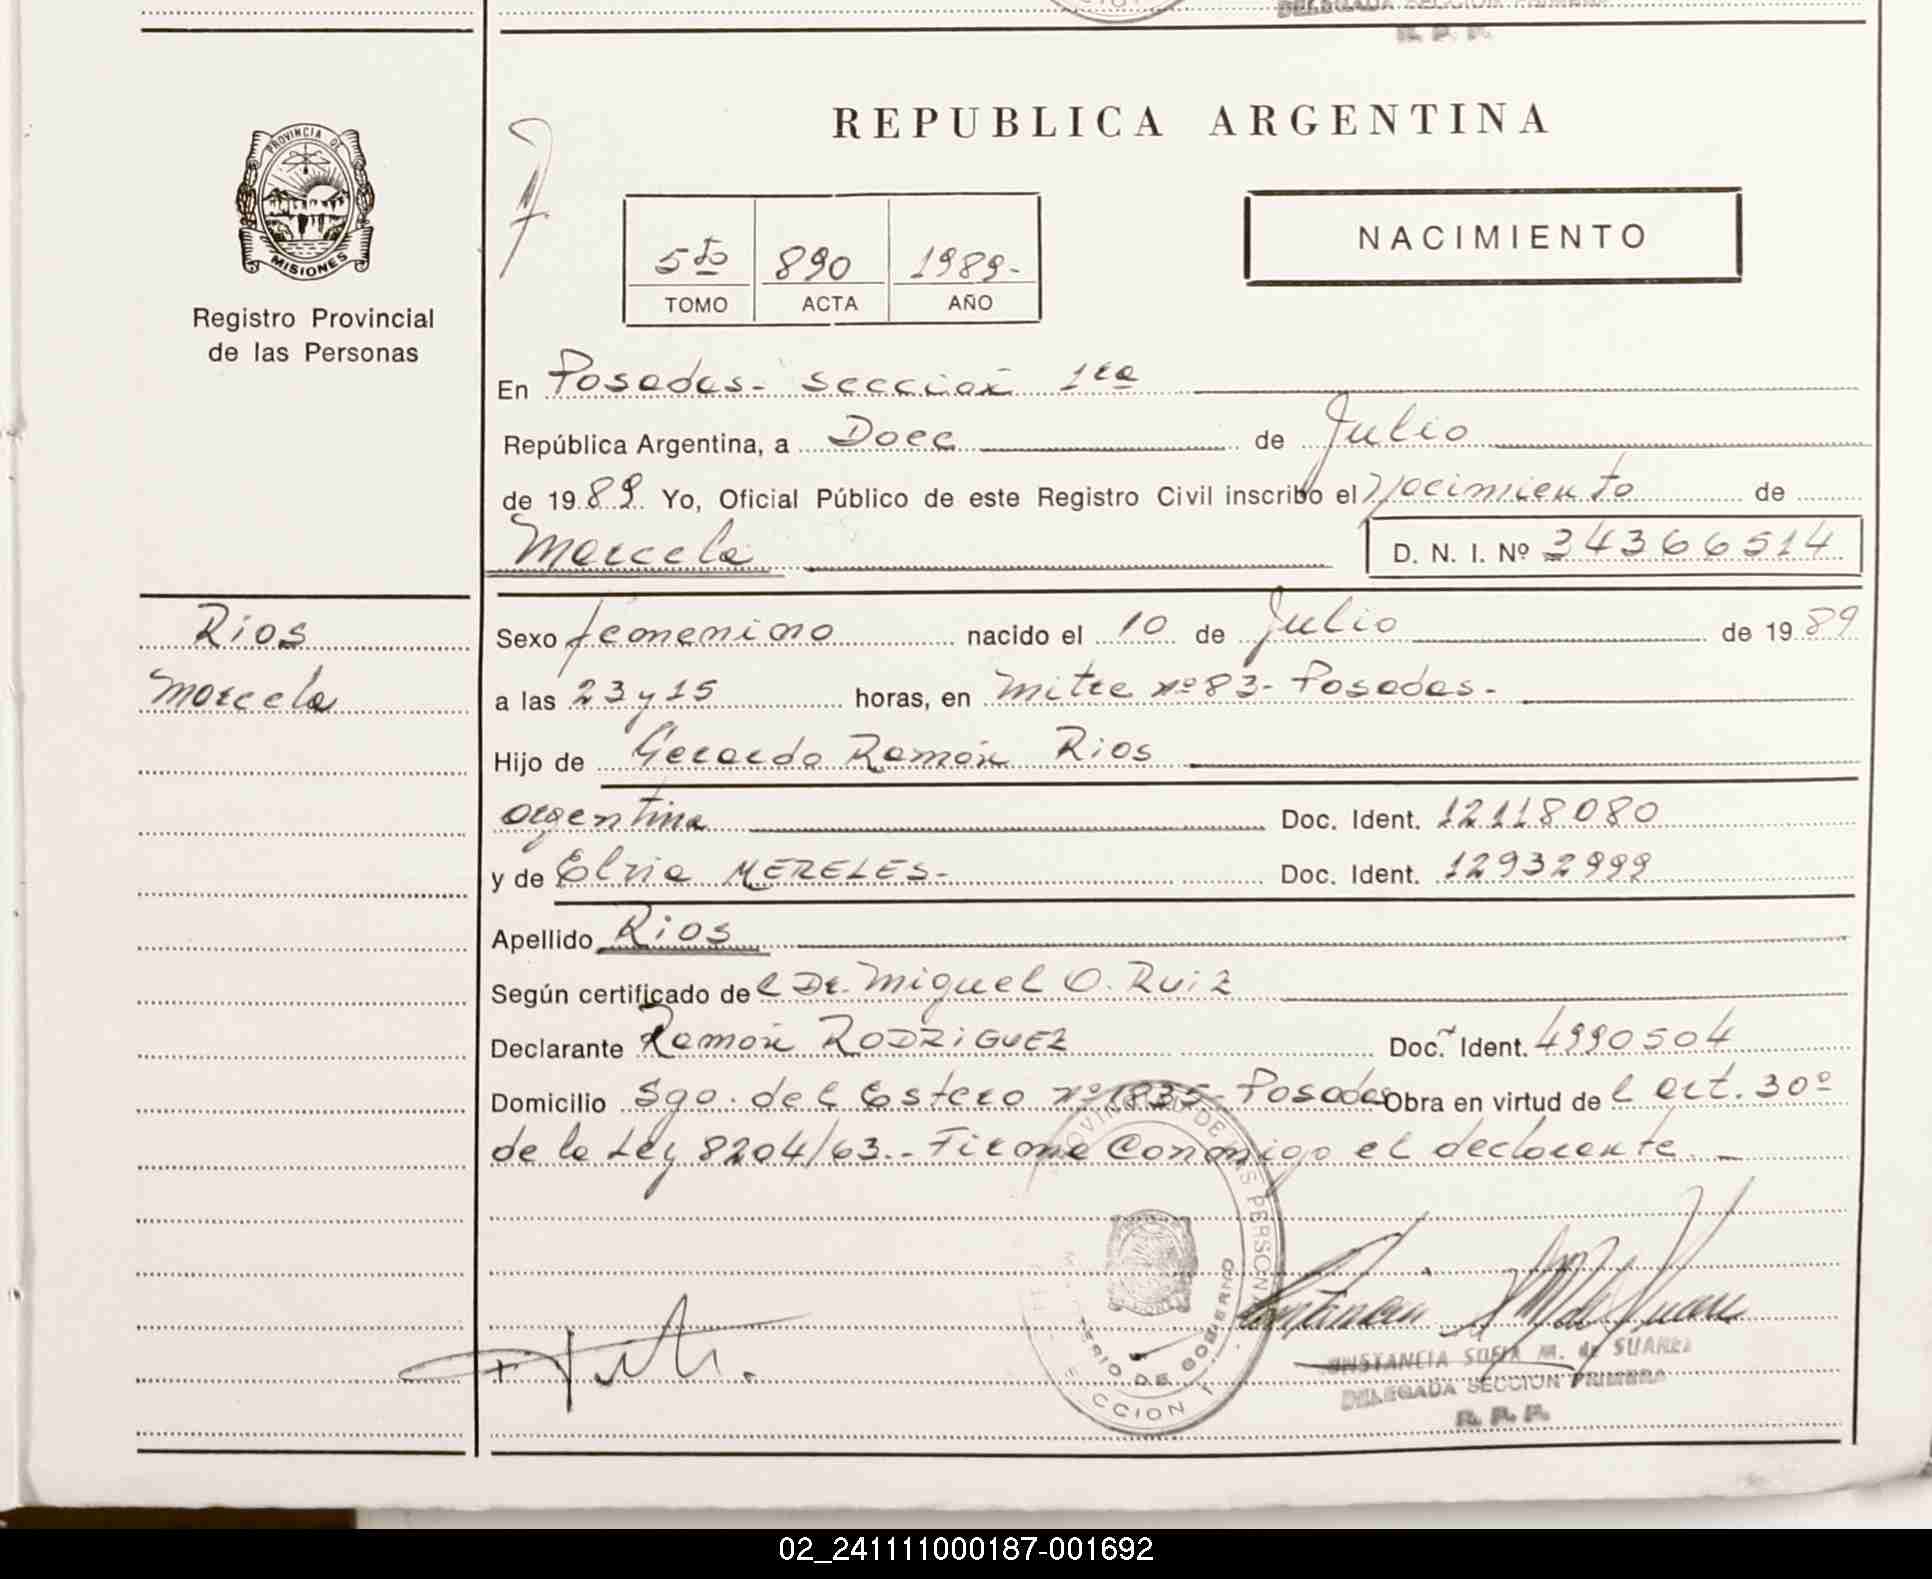 DELEGADA SECCION PRIMERA
R. P. P.
REPUBLICA ARGENTINA
PROVINCIA DE
MISIONES
Registro Provincial
de las Personas
5to 890 1989-
TOMO ACTA AÑO
NACIMIENTO
En Posadas- sección 1ra
República Argentina, a Doce de Julio
de 1989 Yo, Oficial Público de este Registro Civil inscribo el Nacimiento de
Marcela D. N. I. Nº 34366514
Rios
Marcela
Sexo femenino nacido el 10 de Julio de 1989
a las 23 y 15 horas, en Mitre nº 83- Posadas-
Hijo de Gerardo Ramón Rios
argentina Doc. Ident. 12118080
y de Elvia MERELES- Doc. Ident. 12932999
Apellido Rios
Según certificado del Dr. Miguel O. Ruiz
Declarante Ramón RODRIGUEZ Doc. Ident. 4990504
Domicilio Sgo. del Estero nº 1835- Posadas Obra en virtud del art. 30º
de la Ley 8204/63.- Firma Conmigo el declarante.-
MINISTERIO DE GOBIERNO
CONSTANCIA SOFIA M. de SUAREZ
DELEGADA SECCION PRIMERA
R. P. P.
02_241111000187-001692